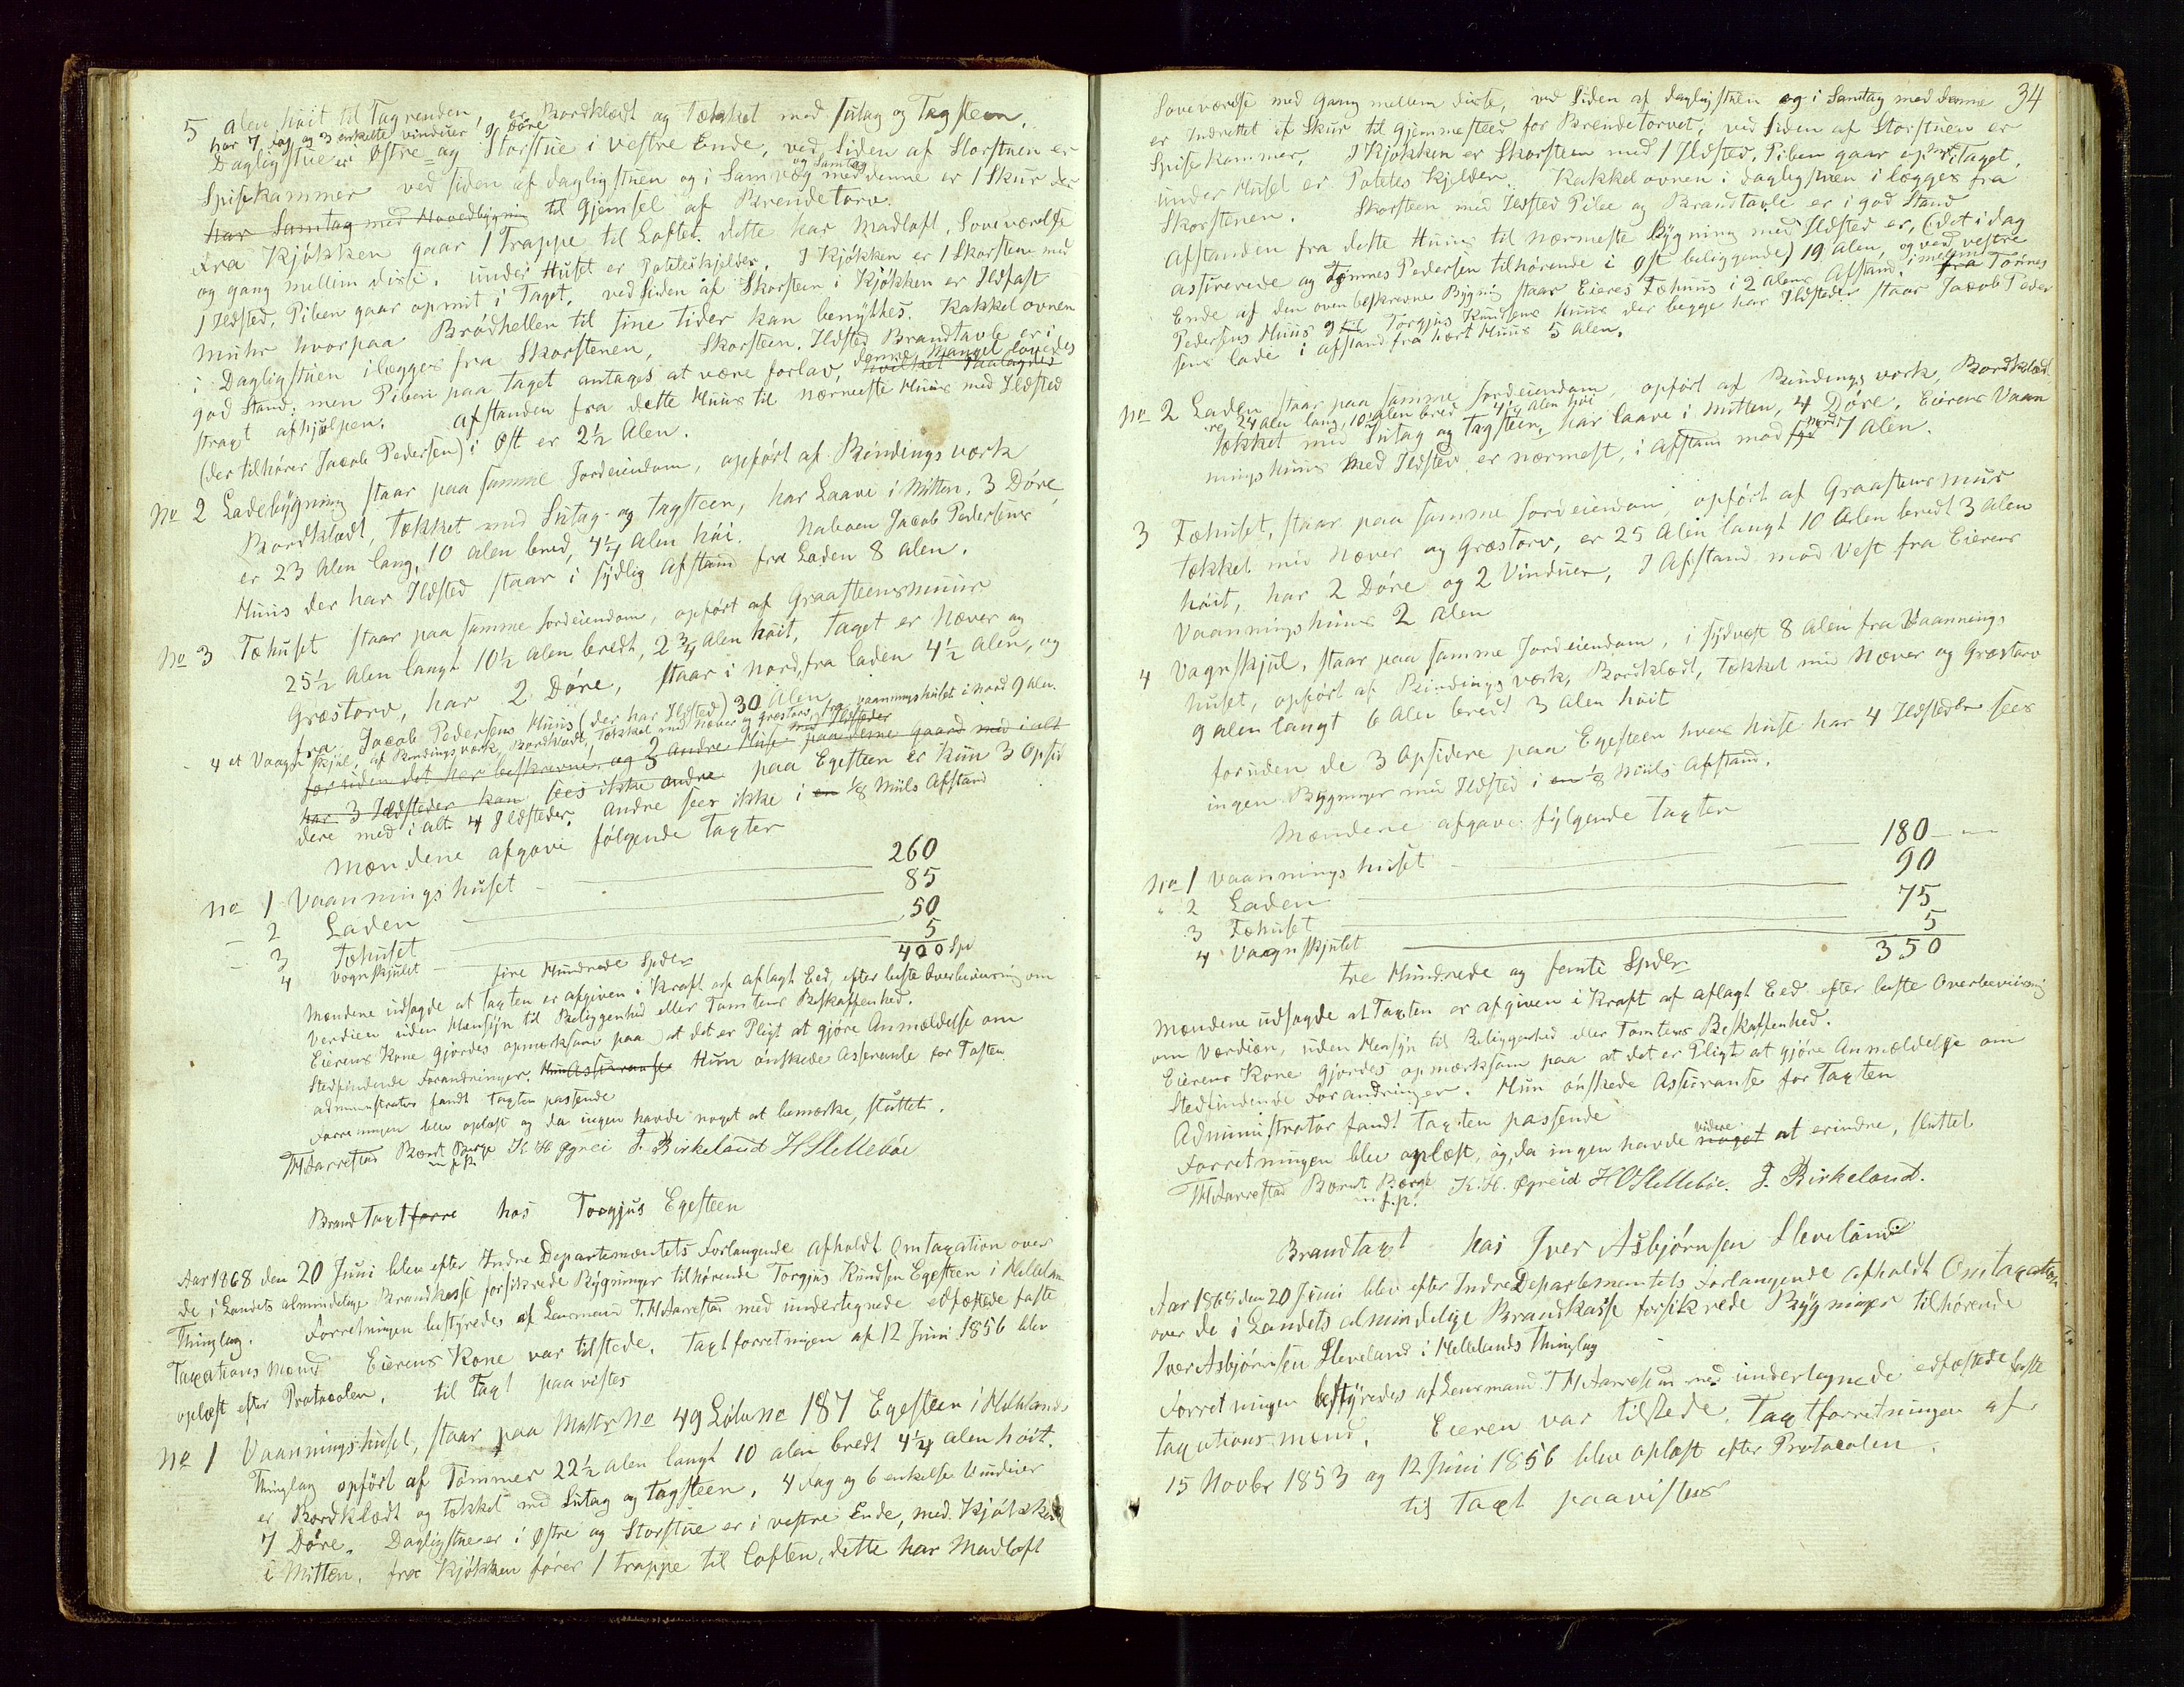 5 alen høit til Tagrenden, er Bordklædt og Tækket med Sutag og Tagsteen.
har 7 Fag og 3 enkelte vinduer 9 Døre
Dagligstue er Østre og Storstue i vestre Ende, ved Siden af Storstuen er
Spisekammer ved siden af dagligstuen og i Samvæg og Samtag med denne er 1 Skur der
har Samtag med Hovedbygning til Gjemsel af Brendetorv.
Fra Kjøkken gaar 1 Trappe til Loftet. dette har Madloft, Soveværelse
og gang mellem disse. under Huset er Poteteskjelder. I Kjøkken er 1 Skorsteen med
1 Ildsted, Piben gaar op mit i Taget, ved Siden af Skorsteen i Kjøkken er Ildfast
muhr hvorpaa Brødhellen til sine tider kan benyttes. Kakkelovnen
i Dagligstuen ilægges fra Skorstenen, Skorsteen, Ildsted Brandtavle er i
god Stand, men Piben paa Taget antages at være forlav, hvilket Paalagdes denne Mangel lovedes
stragt afhjulpen. Afstanden fra dette Huus til nærmeste Huus med Ildsted
(der tilhører Jacob Pedersen) i Øst er 2½ Alen.
No 2 Ladebygning staar paa samme Jordeiendom, opført af Bindingsværk
Bordklædt, Tækket med Sutag og Tagsteen, har Laave i Mitten, 3 Døre
er 23 Alen lang, 10 alen bred, 4¼ Alen høi. Naboen Jacob Pedersens
Huus der har Ildsted staar i sydlig Afstand fra Laden 8 alen.
No 3 Fæhuset staar paa samme Jordeiendom, opført af Graasteensmuur
25½ Alen langt 10½ Alen bredt, 2¾ Alen høit, Taget er Næver og
Græstorv, har 2 Døre, staar i Nord, fra laden 4½ Alen, og
fra Jacob Pedersens Huus (der har Ildsted) 30 Alen
4 et Vaagnskjul, af Bindingsværk, Bordklædt, Tækket med Næver og græstorv, fra vaaningshuset i nord 9 Alen.
foruden det her beskrevne og 3 andre Huse med Ildsteder paa denne Gaard med i alt
har 3 Ildsteder kan sees ikke andre paa Egesteen er kun 3 Opsid
dere med i alt 4 Ildsteder. andre sees ikke i en ⅛ Miils Afstand
Mændene afgave følgende Taxter
No 1 Vaanningshuset 260
2 Laden 85
3 Fæhuset 50
4 Vognskjulet 5
400 Spd
fire Hundrede Spder
Mændene udsagde at Taxten er afgiven i Kraft af aflagt Eed, efter beste Overbeviisning om
Verdien uden Hensyn til Beliggenhed eller Tomtens Beskaffenhed.
Eierens Kone gjordes opmærksom paa at det er Pligt at gjøre Anmældelse om
Stedfindende Forandringer. Hun Asseranse Hun ønskede Asseranse for Taxten
administrator fandt Taxten passende
Forretningen blev oplæst og da ingen havde noget at bemærke, sluttet.
TH Aarrestad Bernt Berge K. H Øgreid J. Birkeland H Slettebøe
m f P.
Brand Taxtforre hos Torgjus Egesteen
Aar 1868 den 20 Juni blev efter Indre Departementets Forlangende afholdt Omtaxation over
de i Landets almindelige Brandkasse forsikrede Bygninger tilhørende Torgjus Knudsen Egesteen i Hellelan
Thinglag. Forretningen bestyredes af Lensmand T. H Aarrestad med undertegnede edfæstede faste
Taxationsmænd Eierens Kone var tilstede. Taxtforretningen af 12 Juni 1856 blev
oplæst efter Protocolen. til Taxt paavistes
No 1 Vaanningshuset, staar paa Matr No 49 Løbe No 187 Egesteen i Hellelands
Thinglag opført af Tømmer 22½ alen langt 10 alen bredt 4¼ alen høit.
er Bordklædt og tækket med Sutag og Tagsteen, 4 Fag og 6 enkelte Vinduer
7 Døre. Dagligstue er i Østre og Storstue er i vestre Ende, med Kjøkken
i Mitten. fra Kjøkken fører 1 Trappe til Loften, dette har Madloft
34
Soveværelse med Gang mellem disse, ved Siden af dagligstuen og i Samtag med denne
er Indrettet et Skur til Gjemmested for Brendetorvet; ved Siden af Storstuen er
Spisekammer. I Kjøkken er Skorsteen med 1 Ildsted. Piben gaar op midt i Taget.
under Huset er Potetes Kjelder. Kakkelovnen i Dagligstuen ilægges fra
Skorstenen. Skorsteen med Ildsted Pibe og Brandtavle er i god Stand
Afstanden fra dette Huus til nærmeste Bygning med Ildsted er, (det i dag
assurerede og Tønnes Pedersen tilhørende i Øst beliggende) 19 Alen, og ved vestre
Ende af den ovenbeskrevne Bygnig staar Eieres Fæhuus i 2 alens Afstand. imellem fra Tønnes
Pedersens Huus og til Torgjus Knudsens Huus der begge har Ildsteder staar Jacob Peder
sens lade i Afstand fra hvert Huus 5 Alen.
No 2 Laden staar paa samme Jordeiendom, opført af Bindingsværk, Bordklæd
er 24 Alen lang, 10 Alen bred 4¼ Alen høi
Tækket med Sutag og Tagsteen, har laave i Mitten, 4 Døre. Eierens Vaan
ningshuus med Ildsted er nærmest, i Afstand mod syd nord 7 alen.
3 Fæhuset, staar paa samme Jordeiendom, opført af Graasteensmuur
tækket med Næver og Græstorv, er 25 Alen langt 10 Alen bredt 3 Alen
høit, har 2 Døre og 2 Vinduer, I Afstand mod Vest fra Eierens
Vaanningshuus 2 Alen
4 Vagnskjul, staar paa samme Jordeiendom, i sydvest 8 Alen fra Vaannings
huset, opført af Bindingsværk, Bordklædt, tækket med Næver og Græstorv
9 alen langt 6 Alen bredt 3 Alen høit
foruden de 3 Opsidere paa Egesteen hvis huse har 4 Ildsteder sees
ingen Bygninger med Ildsted i en ⅛ Miils Afstand.
Mændene afgave følgende Taxter
No 1 Vaanningshuset 180
" 2 Laden 90
3 Fæhuset 75
4 Vaagnskjulet 5
350
tre Hundrede og femti Spder
Mændene udsagde at Taxten er afgiven i Kraft af aflagt Eed efter beste Overbeviisning
om Værdien, uden Hensyn til Beliggenhed eller Tomtens Beskaffenhed.
Eierens Kone gjordes opmærksom paa at det er Pligt at gjøre Anmældelse om
Stedfindende Forandringer. Hun ønskede Assuranse for Taxten
Administrator fandt Taxten passende
Forretningen blev oplæst, og, da ingen havde noget videre at erindre, sluttet
TH Aarrestad Bernt Berge K. H. Øgreid H O Slettebøe. J. Birkeland.
m. f. P.
Brandtaxt hos Iver Asbjørnsen Sleveland
Aar 1868 den 20 Juni blev efter Indre Departementets Forlangende afholdt Omtaxation
over de i Landets almindelige Brandkasse forsikrede Bygninger tilhørende
Iver Asbjørnsen Sleveland i Hellelands Thinglag
Forretningen bestyredes af Lensmand T H Aarrestad med undertegnede edfæstede faste
taxationsmænd. Eieren var tilstede. Taxtforretningen af
15 Novbr 1853 og 12 Juni 1856 blev oplæst efter Protocolen.
til Taxt paavistes